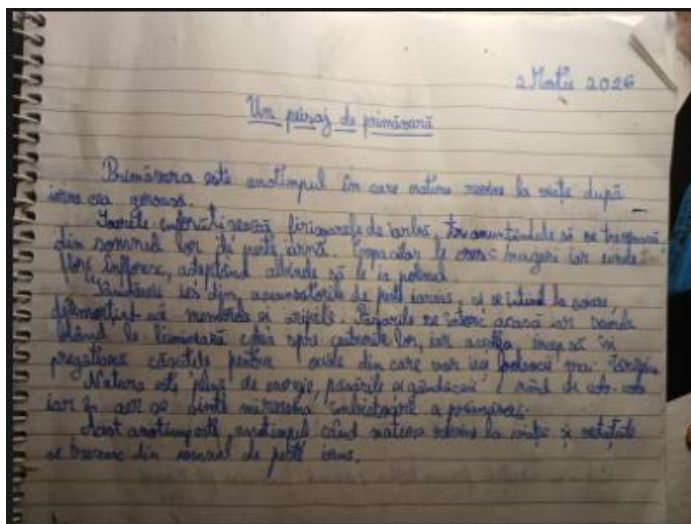 2 Martie 2026
Un peisaj de primăvară
Primăvara este anotimpul în care natura revine la viață după
iarna cea geroasă.
Soarele îmbrățișează firișoarele de iarbă, și se trezească
din somnul lor de peste iarnă. Copacilor le cresc muguri iar
flori înfloresc, albinele să le ia polenul.
ies din ascunzătorile de peste iarnă, și se întind la soare,
și aripile. Păsările se întorc acasă iar
blând le luminează calea spre lor, iar acestea încep să își
pregătească căsuțele pentru ouăle din care vor ieși mai
Natura este plină de energie, păsările și gândacii,
iar în aer se simte mireasma îmbietoare a primăverii.
Acest anotimp este anotimpul când natura revine la viață și
se trezesc din somnul de peste iarnă.